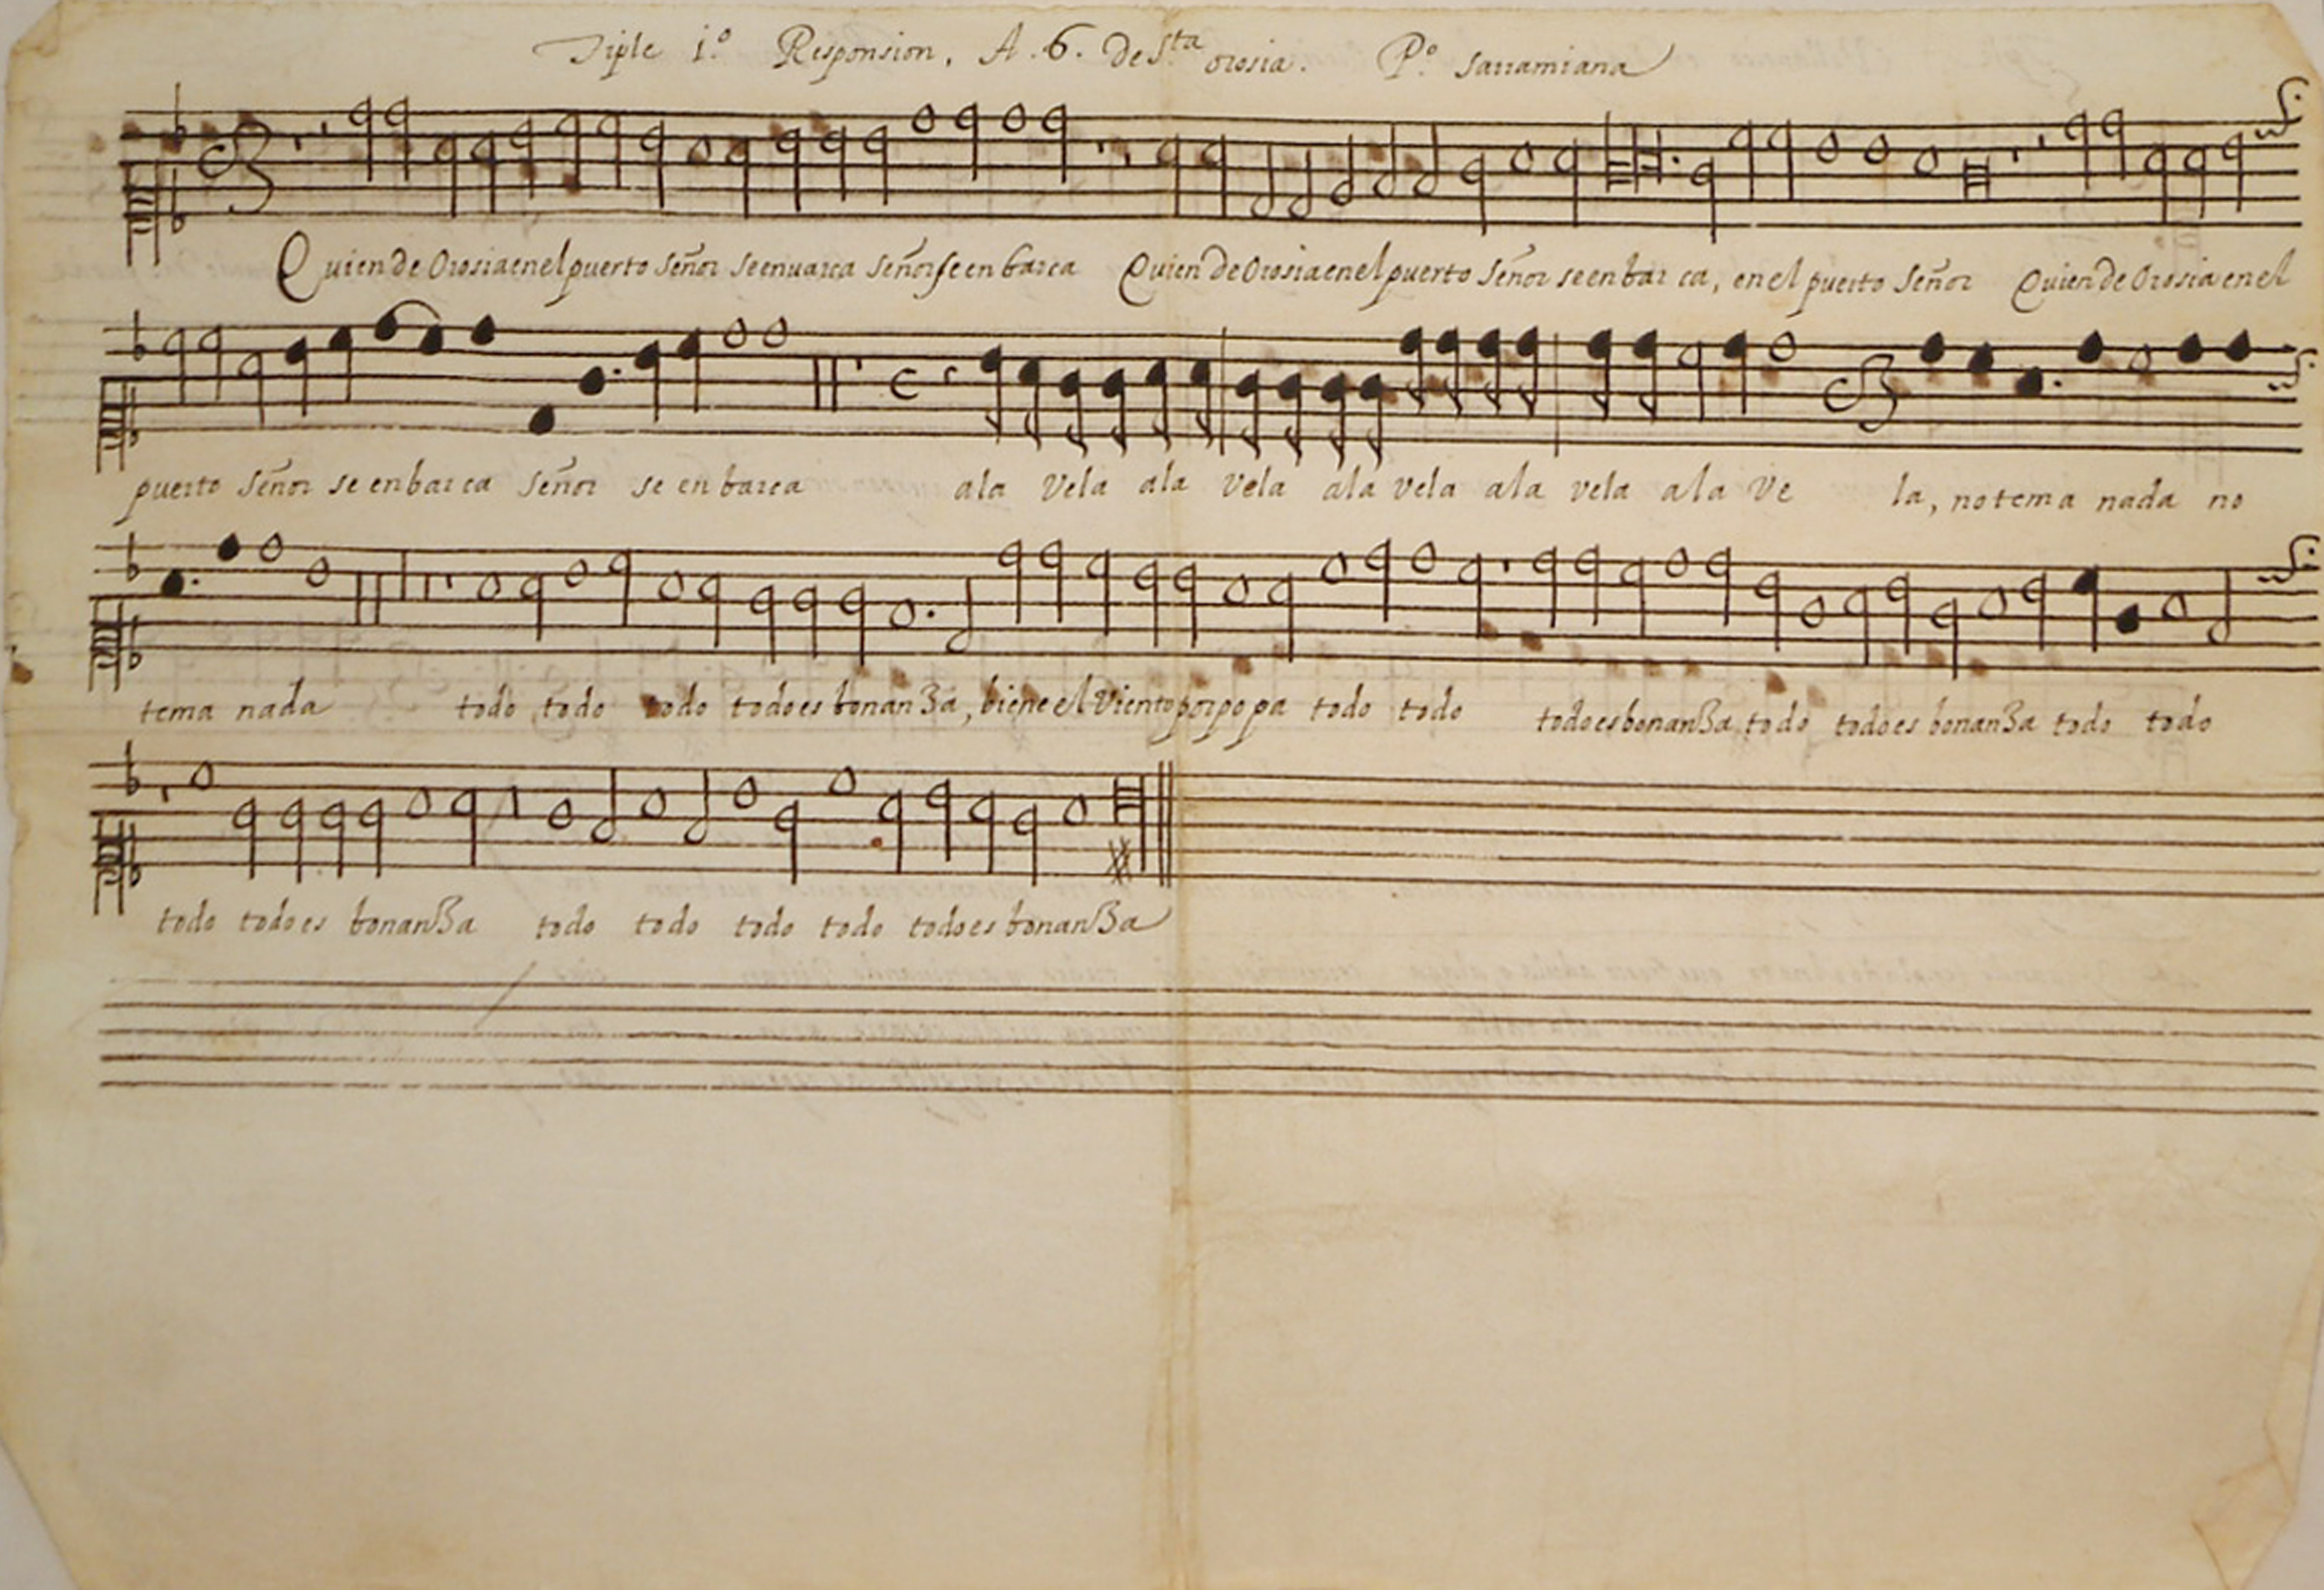 Tiple 1.º Responsion, A.6. de S.ta orosia. P.º sarramiana
Quien de Orosia en el puerto Señor se enuarca Señor se en barca Quien de Orosia en el puerto Señor se en bar ca, en el puerto Señor Quien de Orosia en el
puerto Señor se en bar ca Señor se en barca ala vela ala vela ala vela ala vela ala ve la, no tema nada no
tema nada todo todo todo todo es bonanza, biene el viento por popa todo todo todo es bonanza todo todo es bonanza todo todo
todo todo es bonanza todo todo todo todo todo es bonanza